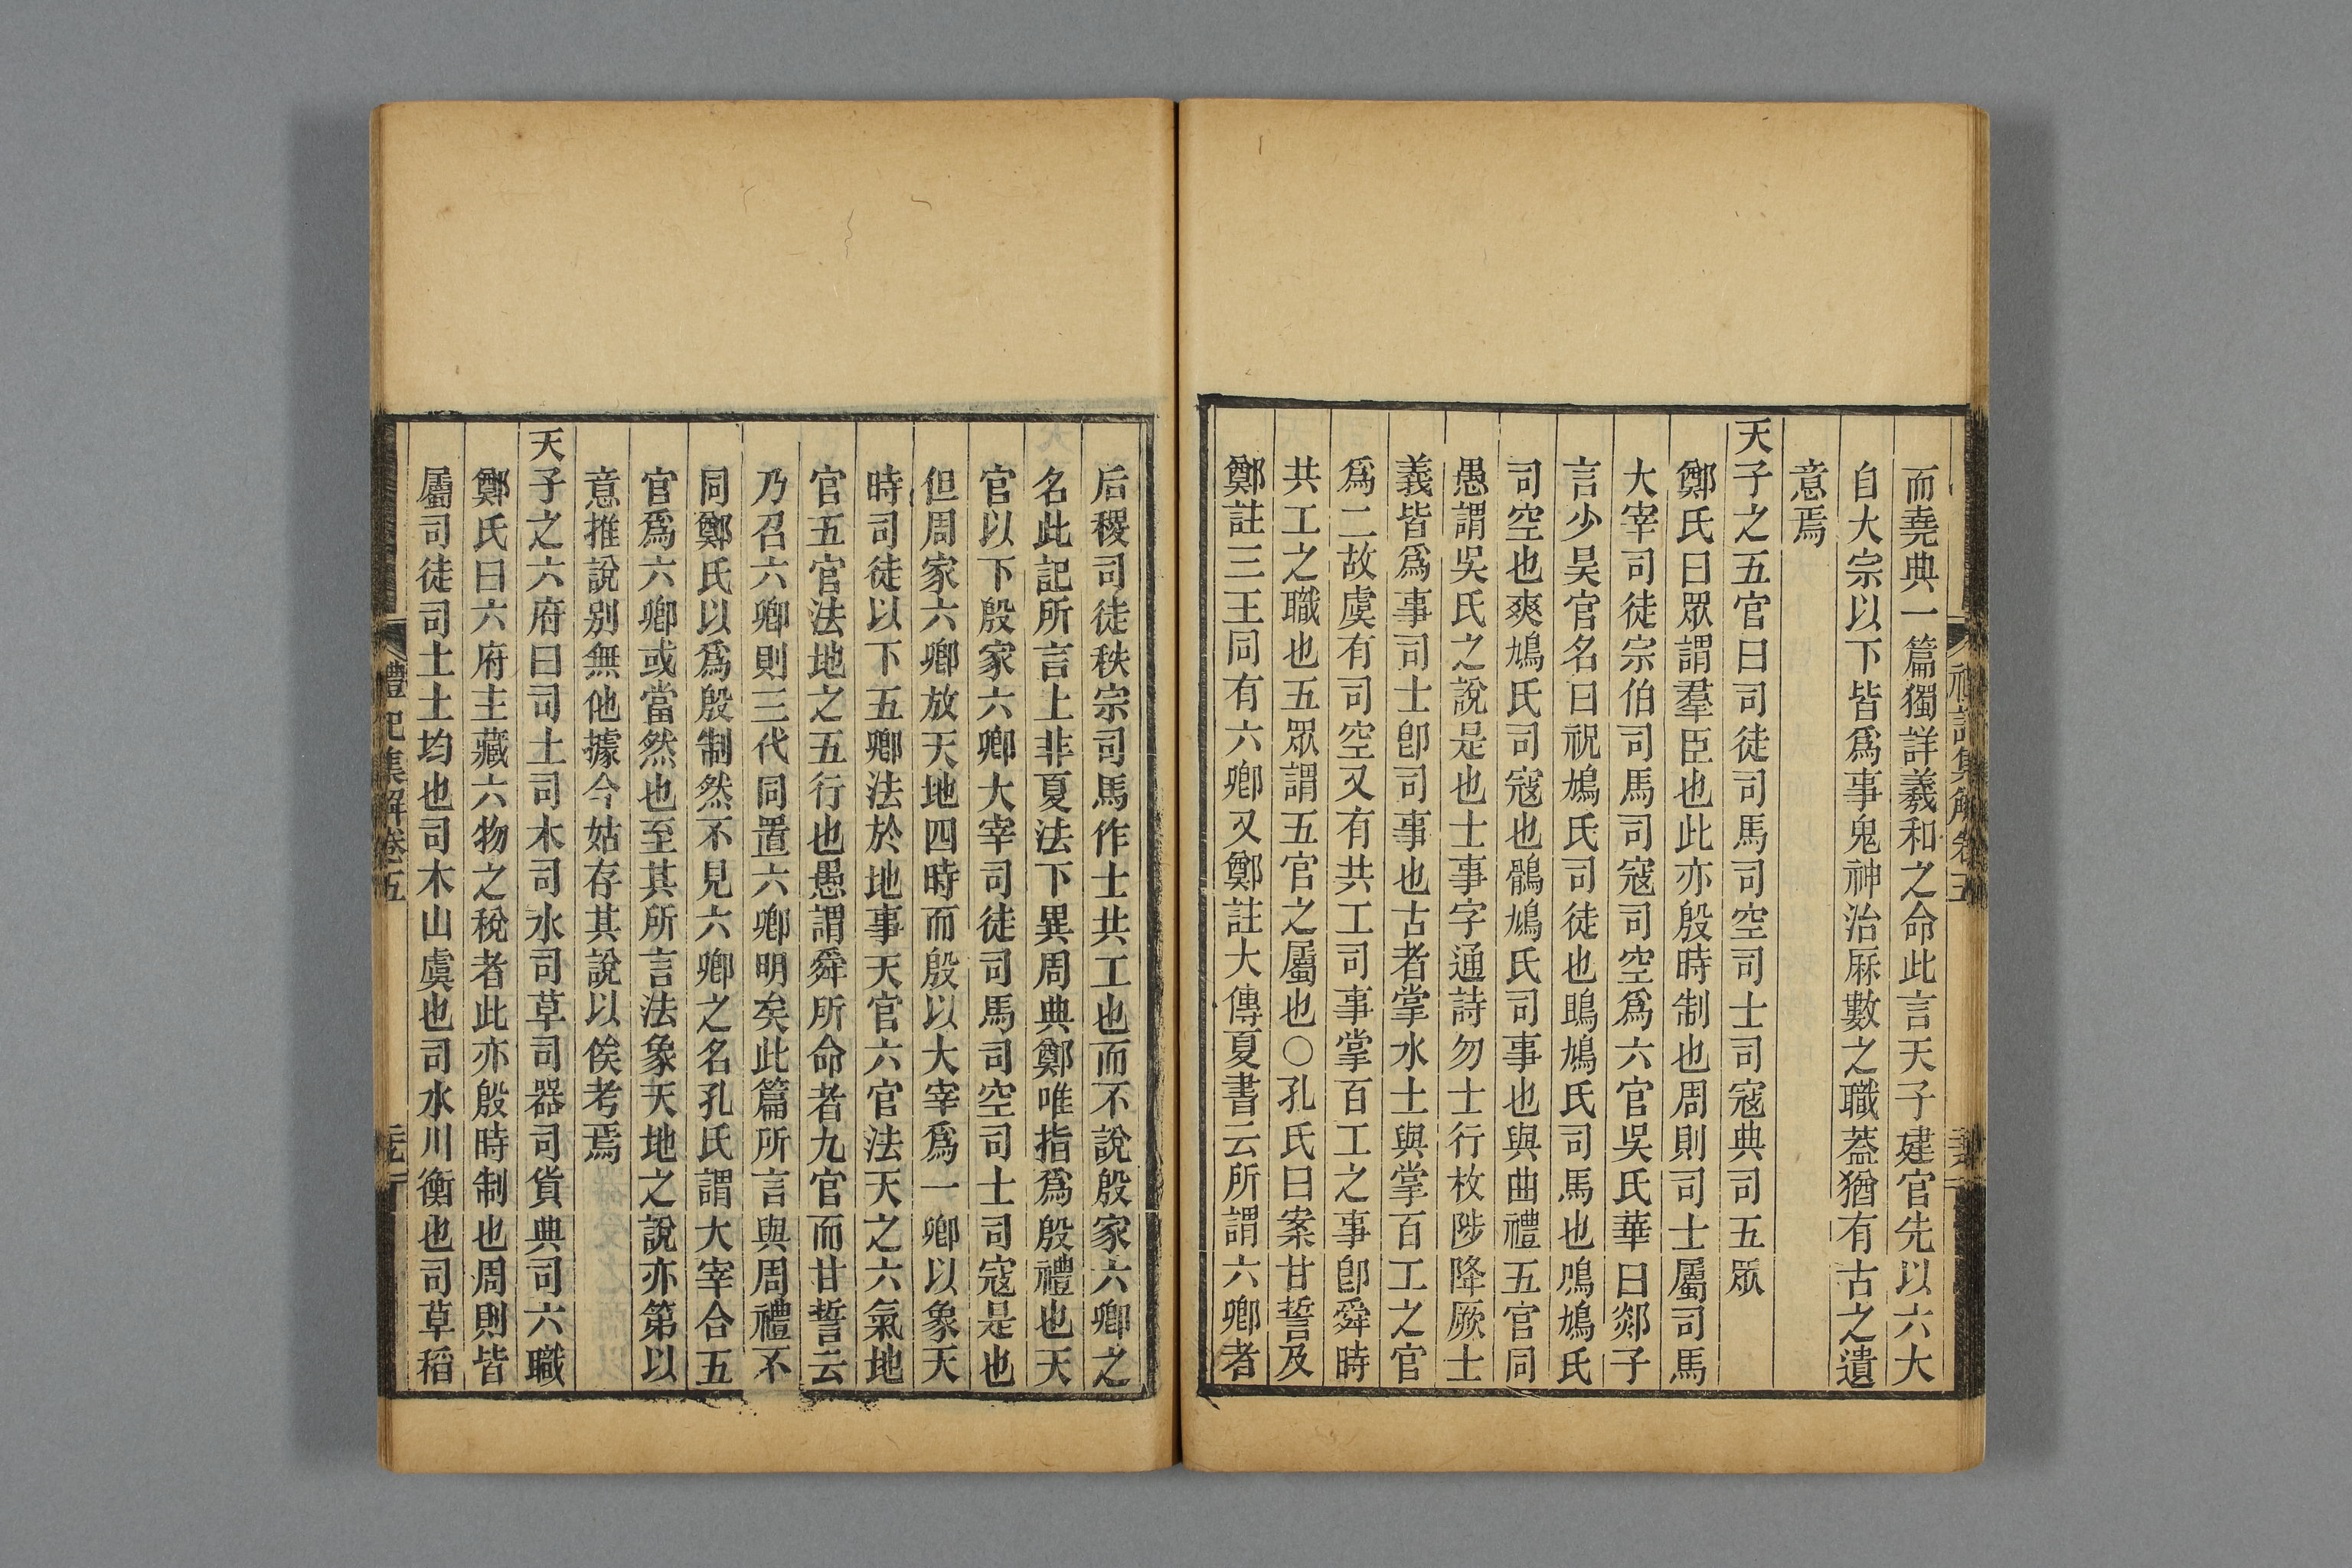 而堯典一篇獨詳羲和之命此言天子建官先以六大
自大宗以下皆爲事鬼神治厤數之職蓋猶有古之遺
意焉
天子之五官曰司徒司馬司空司士司寇典司五眾
鄭氏曰眾謂羣臣也此亦殷時制也周則司士屬司馬
大宰司徒宗伯司馬司寇司空爲六官吳氏華曰郯子
言少昊官名曰祝鳩氏司徒也鴡鳩氏司馬也鳲鳩氏
司空也爽鳩氏司寇也鶻鳩氏司事也與曲禮五官同
愚謂吳氏之說是也士事字通詩勿士行枚陟降厥士
義皆爲事司士卽司事也古者掌水土與掌百工之官
爲二故虞有司空又有共工司事掌百工之事卽舜時
共工之職也五眾謂五官之屬也○孔氏曰案甘誓及
鄭註三王同有六卿又鄭註大傳夏書云所謂六卿者
后稷司徒秩宗司馬作士共工也而不說殷家六卿之
名此記所言上非夏法下異周典鄭唯指爲殷禮也天
官以下殷家六卿大宰司徒司馬司空司士司寇是也
但周家六卿放天地四時而殷以大宰爲一卿以象天
時司徒以下五卿法於地事天官六官法天之六氣地
官五官法地之五行也愚謂舜所命者九官而甘誓云
乃召六卿則三代同置六卿明矣此篇所言與周禮不
同鄭氏以爲殷制然不見六卿之名孔氏謂大宰合五
官爲六卿或當然也至其所言法象天地之說亦第以
意推說別無他據今姑存其說以俟考焉
天子之六府曰司土司木司水司草司器司貨典司六職
鄭氏曰六府主藏六物之稅者此亦殷時制也周則皆
屬司徒司土土均也司木山虞也司水川衡也司草稻
禮記集解卷五